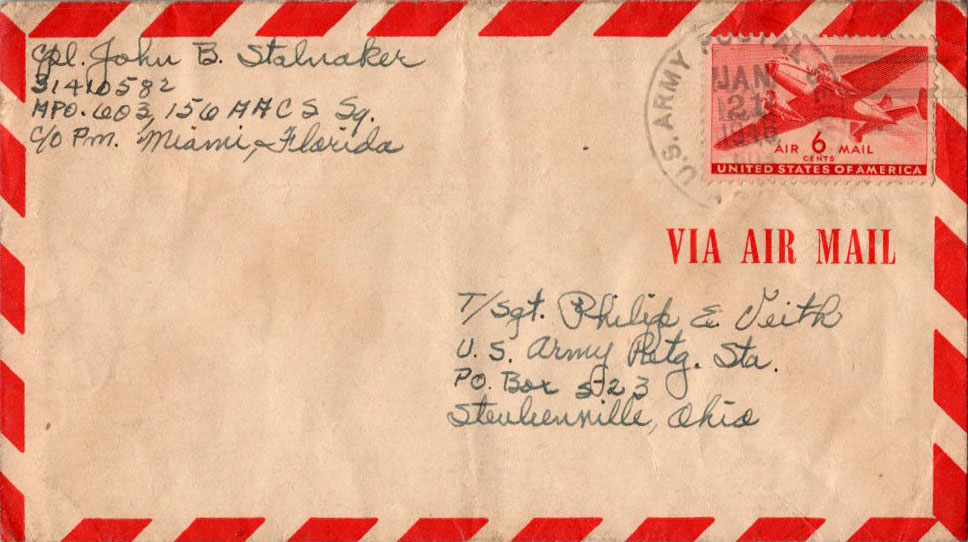 Cpl. John B. Stalnaker
31410582
APO. 603, 156 AACS Sq.
C/O Pm. Miami, Florida
U.S. ARMY POSTAL
JAN
21
1946
AIR 6 MAIL
CENTS
UNITED STATES OF AMERICA
VIA AIR MAIL
T/Sgt. Philip E Veith
U.S. Army Rctg. Sta.
PO. Box 523
Steubenville, Ohio